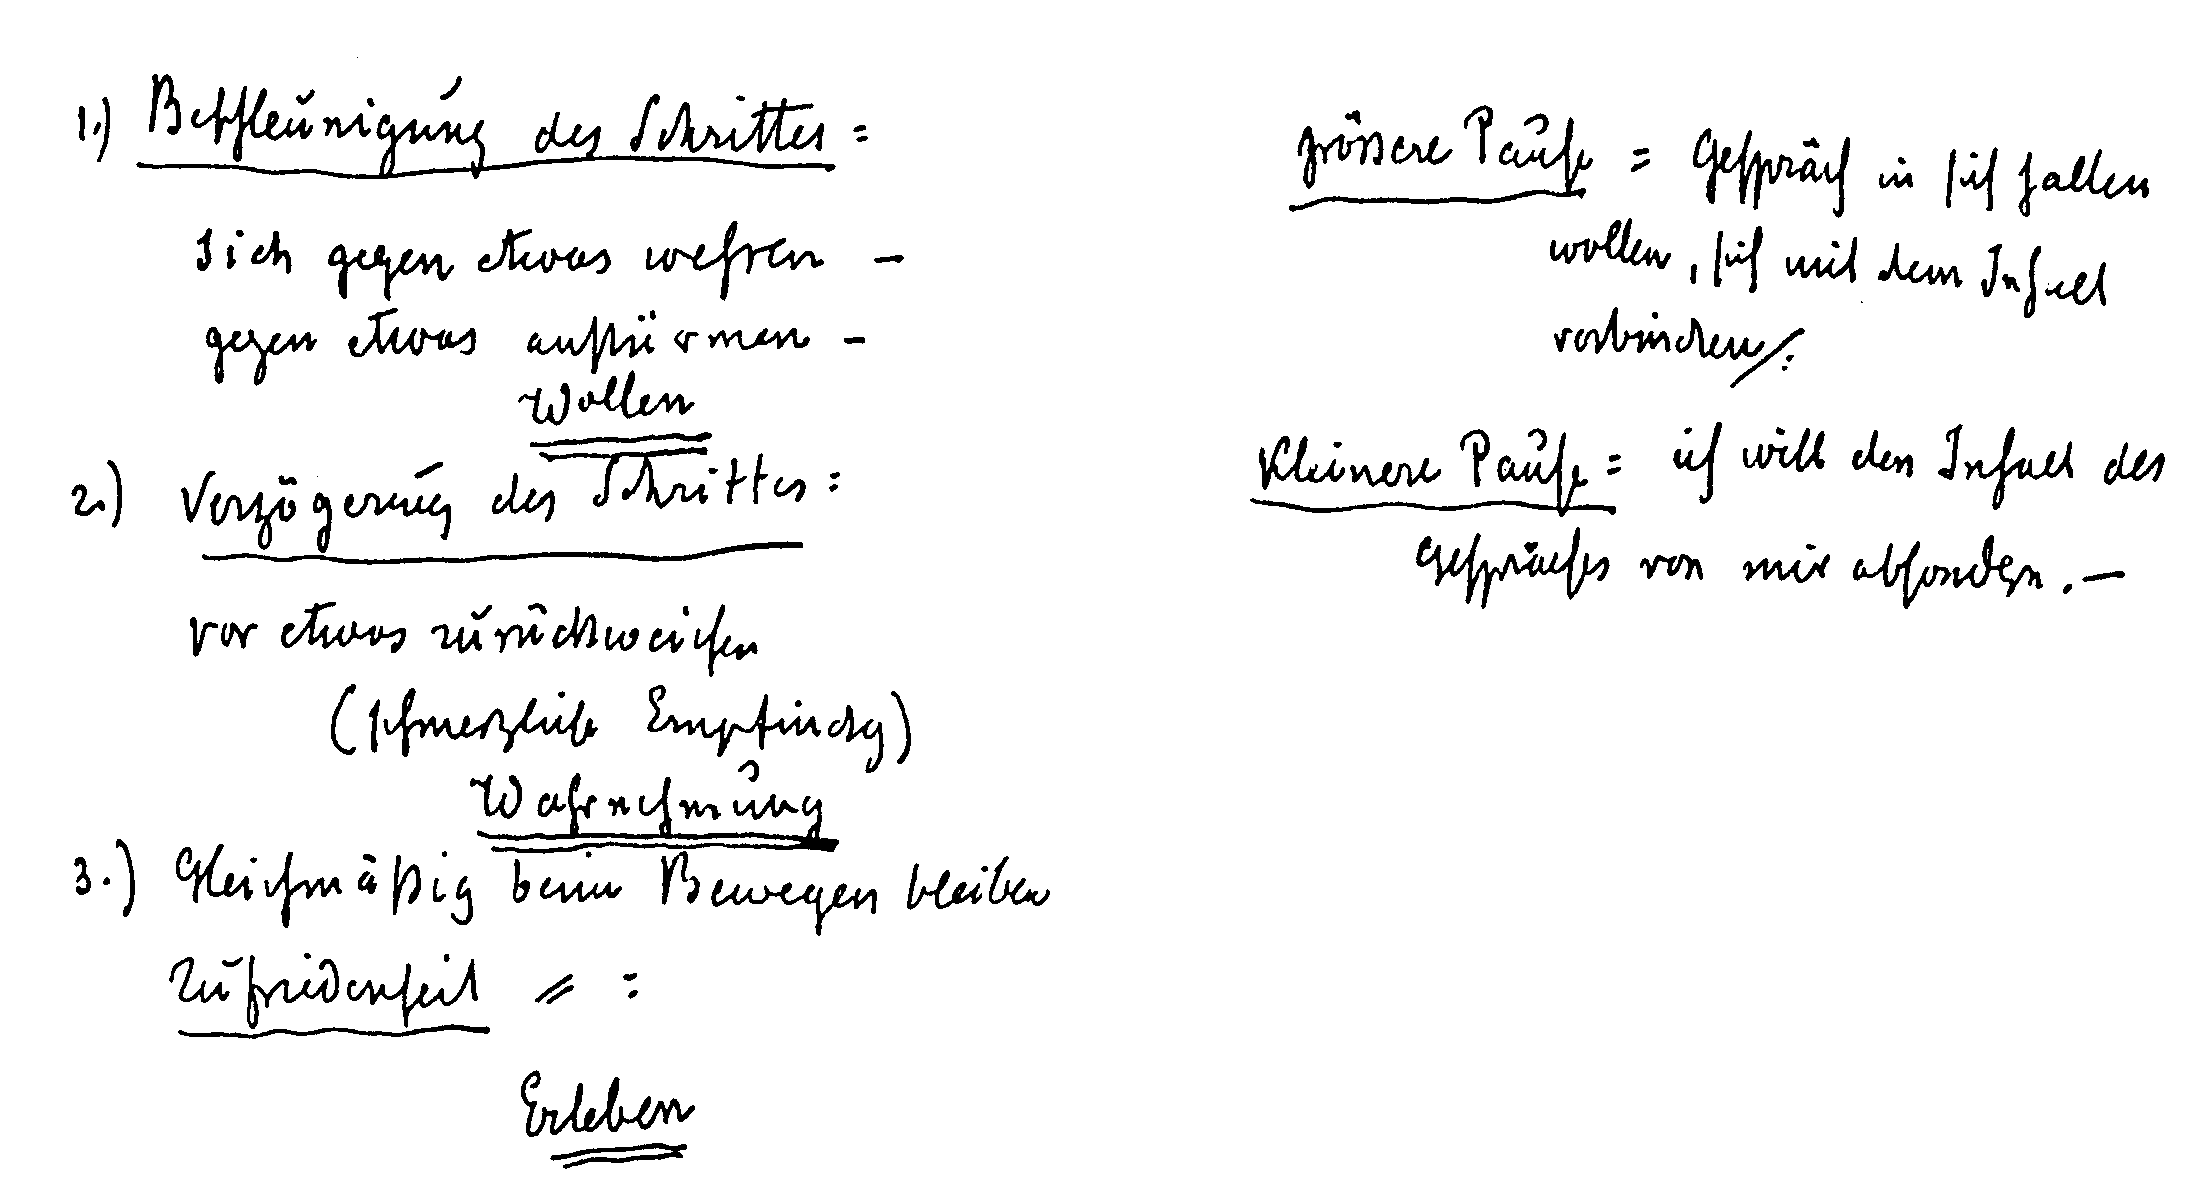 1.) Beschleunigung des Schrittes =
sich gegen etwas wehren –
gegen etwas anstürmen –
Wollen
2.) Verzögerung des Schrittes :
vor etwas zurückweichen
(schmerzliche Empfindg)
Wahrnehmung
3.) Gleichmäßig beim Bewegen bleiben
Zufriedenheit = :
Erleben
grössere Pause = Gespräch in sich halten
wollen, sich mit dem Inhalt
verbinden/:
Kleinere Pause = ich will den Inhalt des
Gespräches von mir absondern. –